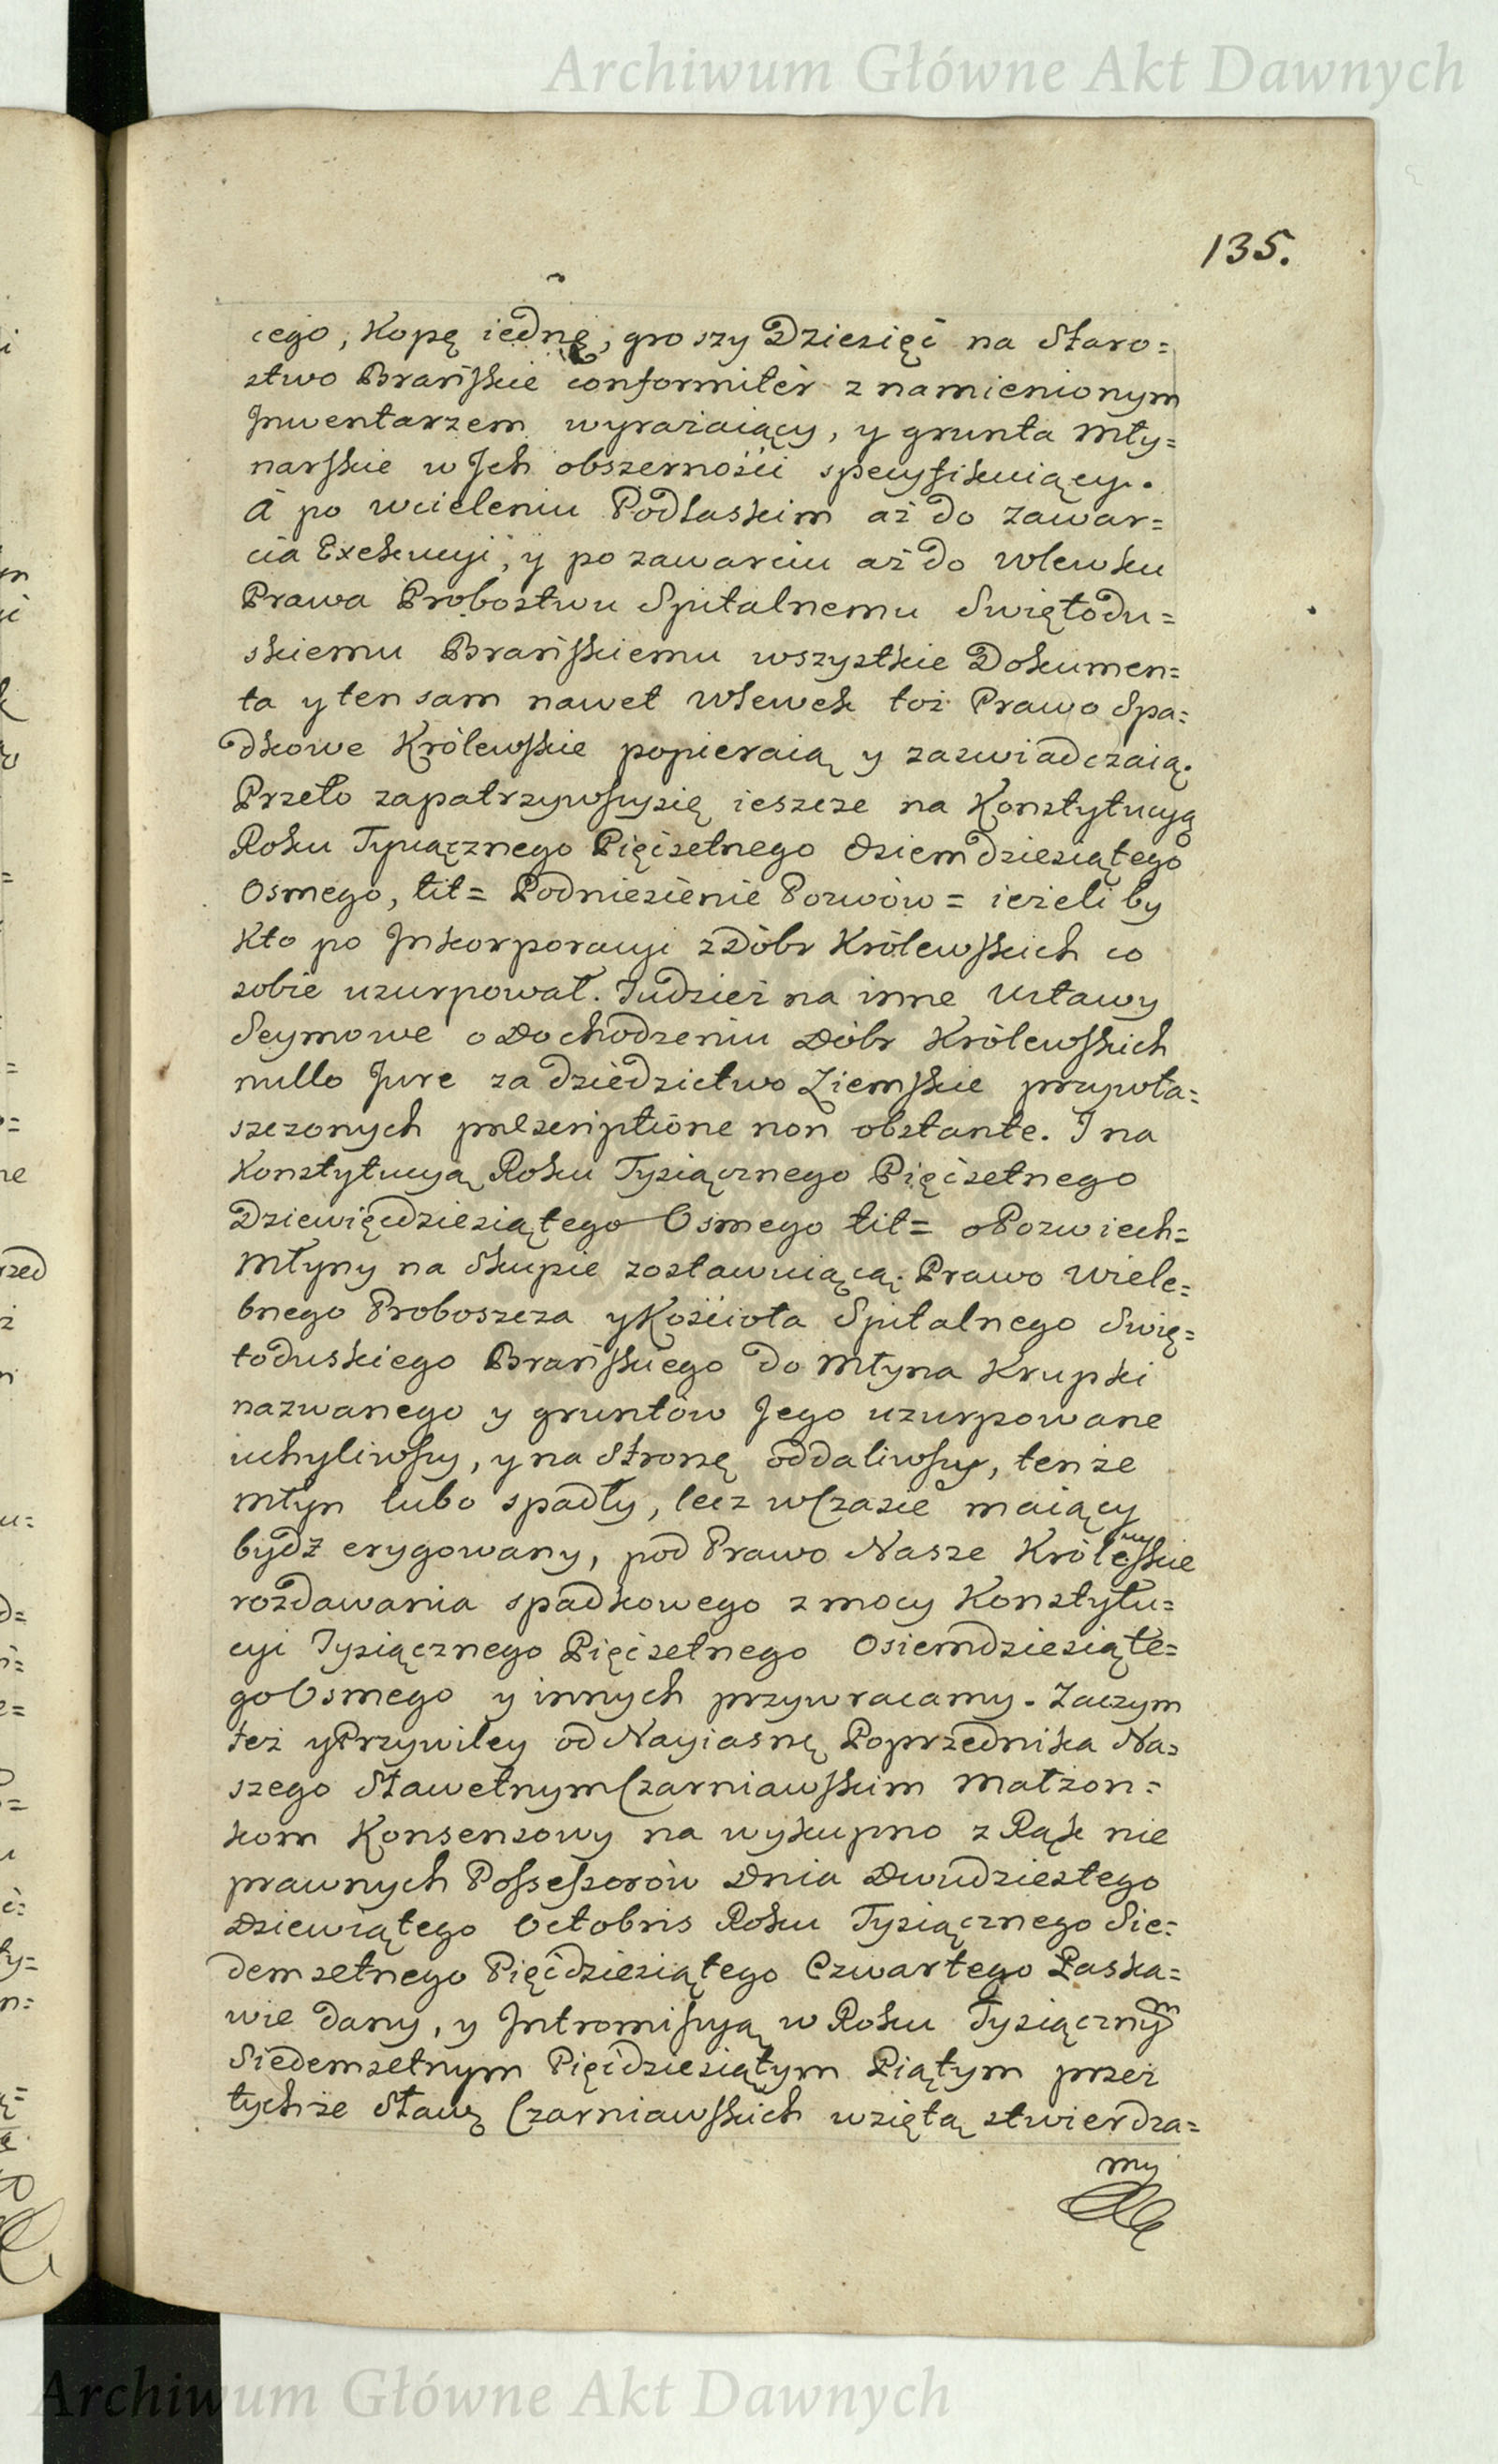 Archiwum Główne Akt Dawnych
135.
cego, Kopę iednę, groszy Dziesięć na Staro=
stwo Brańskie conformitèr z namienionym
Inwentarzem wyrażaiący, y grunta Mły=
narskie w Ich obszerności specyfikuiący.
A po wcieleniu Podlaskim aż do zawar=
cia Exekucyi, y po zawarciu aż do Wlewku
Prawa Probostwu Spitalnemu Swiętodu=
skiemu Brańskiemu wszystkie Dokumen=
ta y ten sam nawet Wlewek toż Prawo Spa=
dkowe Królewskie popieraią y zaswiadczaią.
Przeto zapatrzywszysię ieszcze na Konstytucyą
Roku Tysiącznego Pięćsetnego Osiemdziesiątego
Osmego, tit= Podniesienie Pozwów= ieżeli by
Kto po Inkorporacyi z Dóbr Królewskich co
sobie uzurpował. Tudzież na inne Ustawy
Seymowe o Dochodzeniu Dóbr Królewskich
nullo Jure za dziedzictwo Ziemskie przywła=
szczonych præscriptione non obstante. I na
Konstytucyą Roku Tysiącznego Pięćsetnego
Dziewięcdziesiątego Osmego tit= o Pozwiech=
Młyny na Skupie zostawuiącą. Prawo Wiele=
bnego Proboszcza y Kościoła Spitalnego Swię=
toduskiego Brańskiego do Młyna Krupki
nazwanego y gruntów Jego uzurpowane
uchyliwszy, y na Stronę oddaliwszy, tenże
młyn lubo spadły, lecz w Czasie maiący
bydź erygowany, pod Prawo Nasze Królewskie
rozdawania spadkowego z mocy Konstytu=
cyi Tysiącznego Pięćsetnego Osiemdziesiąte=
go Osmego y innych przywracamy. Zaczym
też y Przywiley od Nayiasnę Poprzednika Na=
szego Sławetnym Czarniawskim Małżon=
kom Konsensowy na wykupno z Rąk nie
prawnych Possessorów Dnia Dwudziestego
Dziewiątego Octobris Roku Tysiącznego Sie=
demsetnego Pięćdziesiątego Czwartego Łaska=
wie dany, y Intromissyą w Roku Tysiącznym
Siedemsetnym Pięćdziesiątym Piątym przez
tychże Sławę Czarniawskich wziętą stwierdza=
my
Archiwum Główne Akt Dawnych